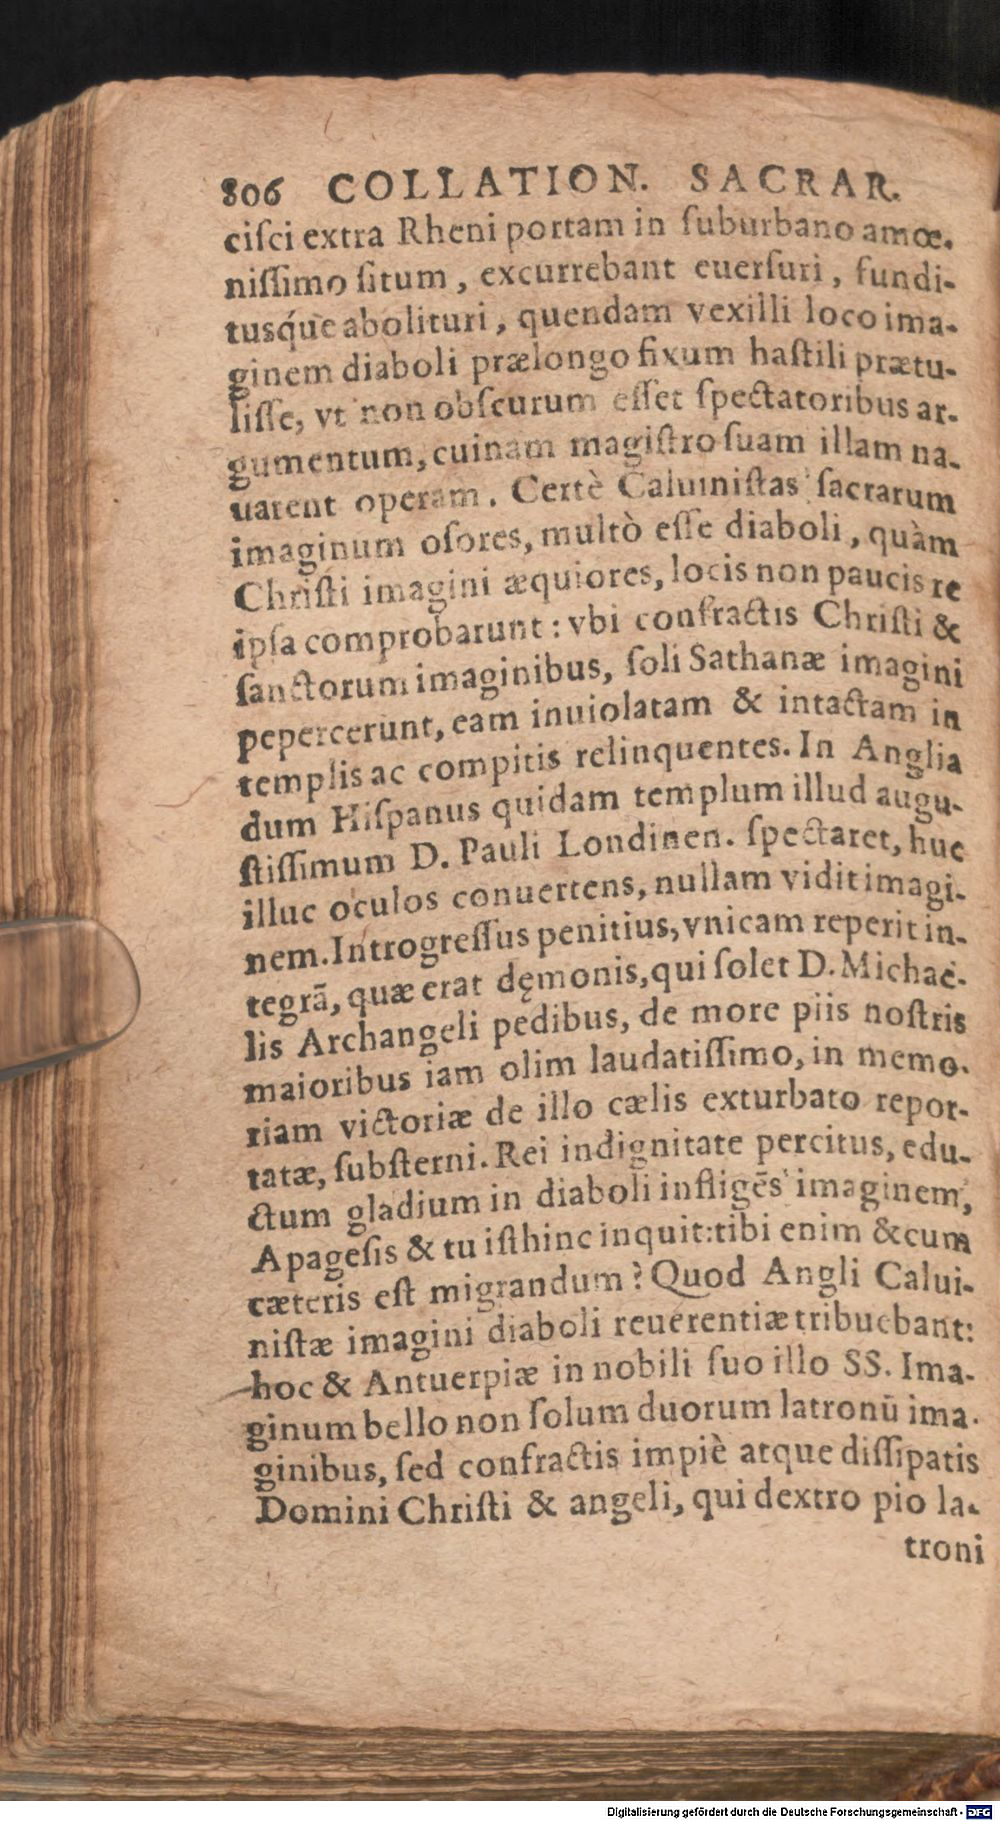 806 COLLATION. SACRAR.
ciſci extra Rheni portam in ſuburbano amœ-
niſſimo ſitum, excurrebant euerſuri, fundi-
tusq́ue abolituri, quendam vexilli loco ima-
ginem diaboli prælongo fixum haſtili prætu-
liſſe, vt non obſcurum eſſet ſpectatoribus ar-
gumentum, cuinam magiſtro ſuam illam na-
uarent operam. Certè Caluiniſtas ſacrarum
imaginum oſores, multò eſſe diaboli, quàm
Chriſti imagini æquiores, locis non paucis re
ipſa comprobarunt: vbi confractis Chriſti &
ſanctorum imaginibus, ſoli Sathanæ imagini
pepercerunt, eam inuiolatam & intactam in
templis ac compitis relinquentes. In Anglia
dum Hiſpanus quidam templum illud augu-
ſtiſſimum D. Pauli Londinen. ſpectaret, huc
illuc oculos conuertens, nullam vidit imagi-
nem. Introgreſſus penitius, vnicam reperit in-
tegrā, quæ erat dęmonis, qui ſolet D. Michaë-
lis Archangeli pedibus, de more piis noſtris
maioribus iam olim laudatiſſimo, in memo-
riam victoriæ de illo cælis exturbato repor-
tatæ, ſubſterni. Rei indignitate percitus, edu-
ctum gladium in diaboli infligēs imaginem,
Apageſis & tu iſthinc inquit: tibi enim & cum
cæteris eſt migrandum? Quod Angli Calui-
niſtæ imagini diaboli reuerentiæ tribuebant:
hoc & Antuerpiæ in nobili ſuo illo SS. Ima-
ginum bello non ſolum duorum latronū ima-
ginibus, ſed confractis impiè atque diſſipatis
Domini Chriſti & angeli, qui dextro pio la-
troni
Digitalisierung gefördert durch die Deutsche Forschungsgemeinschaft - DFG